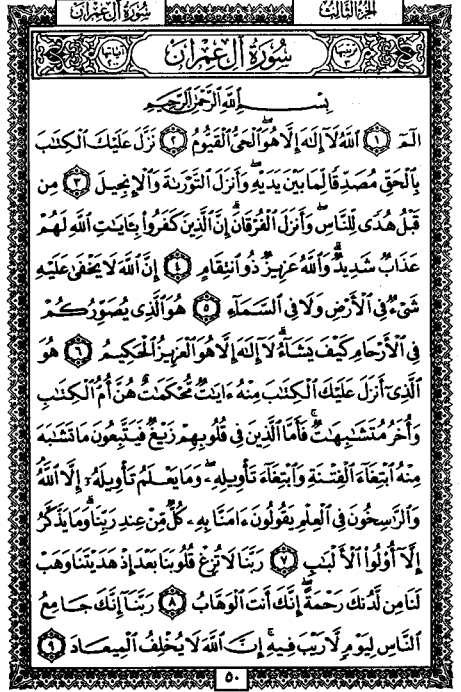 سُورَةُ آلِ عِمْرَان
الجُزءُ الثَّالِثُ
ترتيبها ٣
سُورَةُ آلِ عِمْرَان
آياتها ٢٠٠
بِسْمِ اللَّهِ الرَّحْمَٰنِ الرَّحِيمِ
الٓمٓ ١ ٱللَّهُ لَآ إِلَٰهَ إِلَّا هُوَ ٱلْحَىُّ ٱلْقَيُّومُ ٢ نَزَّلَ عَلَيْكَ ٱلْكِتَٰبَ
بِٱلْحَقِّ مُصَدِّقًا لِّمَا بَيْنَ يَدَيْهِ وَأَنزَلَ ٱلتَّوْرَىٰةَ وَٱلْإِنجِيلَ ٣ مِن
قَبْلُ هُدًى لِّلنَّاسِ وَأَنزَلَ ٱلْفُرْقَانَ ۗ إِنَّ ٱلَّذِينَ كَفَرُوا۟ بِـَٔايَٰتِ ٱللَّهِ لَهُمْ
عَذَابٌ شَدِيدٌ ۗ وَٱللَّهُ عَزِيزٌ ذُو ٱنتِقَامٍ ٤ إِنَّ ٱللَّهَ لَا يَخْفَىٰ عَلَيْهِ
شَىْءٌ فِى ٱلْأَرْضِ وَلَا فِى ٱلسَّمَآءِ ٥ هُوَ ٱلَّذِى يُصَوِّرُكُمْ
فِى ٱلْأَرْحَامِ كَيْفَ يَشَآءُ ۚ لَآ إِلَٰهَ إِلَّا هُوَ ٱلْعَزِيزُ ٱلْحَكِيمُ ٦ هُوَ
ٱلَّذِىٓ أَنزَلَ عَلَيْكَ ٱلْكِتَٰبَ مِنْهُ ءَايَٰتٌ مُّحْكَمَٰتٌ هُنَّ أُمُّ ٱلْكِتَٰبِ
وَأُخَرُ مُتَشَٰبِهَٰتٌ ۖ فَأَمَّا ٱلَّذِينَ فِى قُلُوبِهِمْ زَيْغٌ فَيَتَّبِعُونَ مَا تَشَٰبَهَ
مِنْهُ ٱبْتِغَآءَ ٱلْفِتْنَةِ وَٱبْتِغَآءَ تَأْوِيلِهِۦ ۗ وَمَا يَعْلَمُ تَأْوِيلَهُۥٓ إِلَّا ٱللَّهُ ۗ
وَٱلرَّٰسِخُونَ فِى ٱلْعِلْمِ يَقُولُونَ ءَامَنَّا بِهِۦ كُلٌّ مِّنْ عِندِ رَبِّنَا ۗ وَمَا يَذَّكَّرُ
إِلَّآ أُو۟لُوا۟ ٱلْأَلْبَٰبِ ٧ رَبَّنَا لَا تُزِغْ قُلُوبَنَا بَعْدَ إِذْ هَدَيْتَنَا وَهَبْ
لَنَا مِن لَّدُنكَ رَحْمَةً ۚ إِنَّكَ أَنتَ ٱلْوَهَّابُ ٨ رَبَّنَآ إِنَّكَ جَامِعُ
ٱلنَّاسِ لِيَوْمٍ لَّا رَيْبَ فِيهِ ۚ إِنَّ ٱللَّهَ لَا يُخْلِفُ ٱلْمِيعَادَ ٩
٥٠